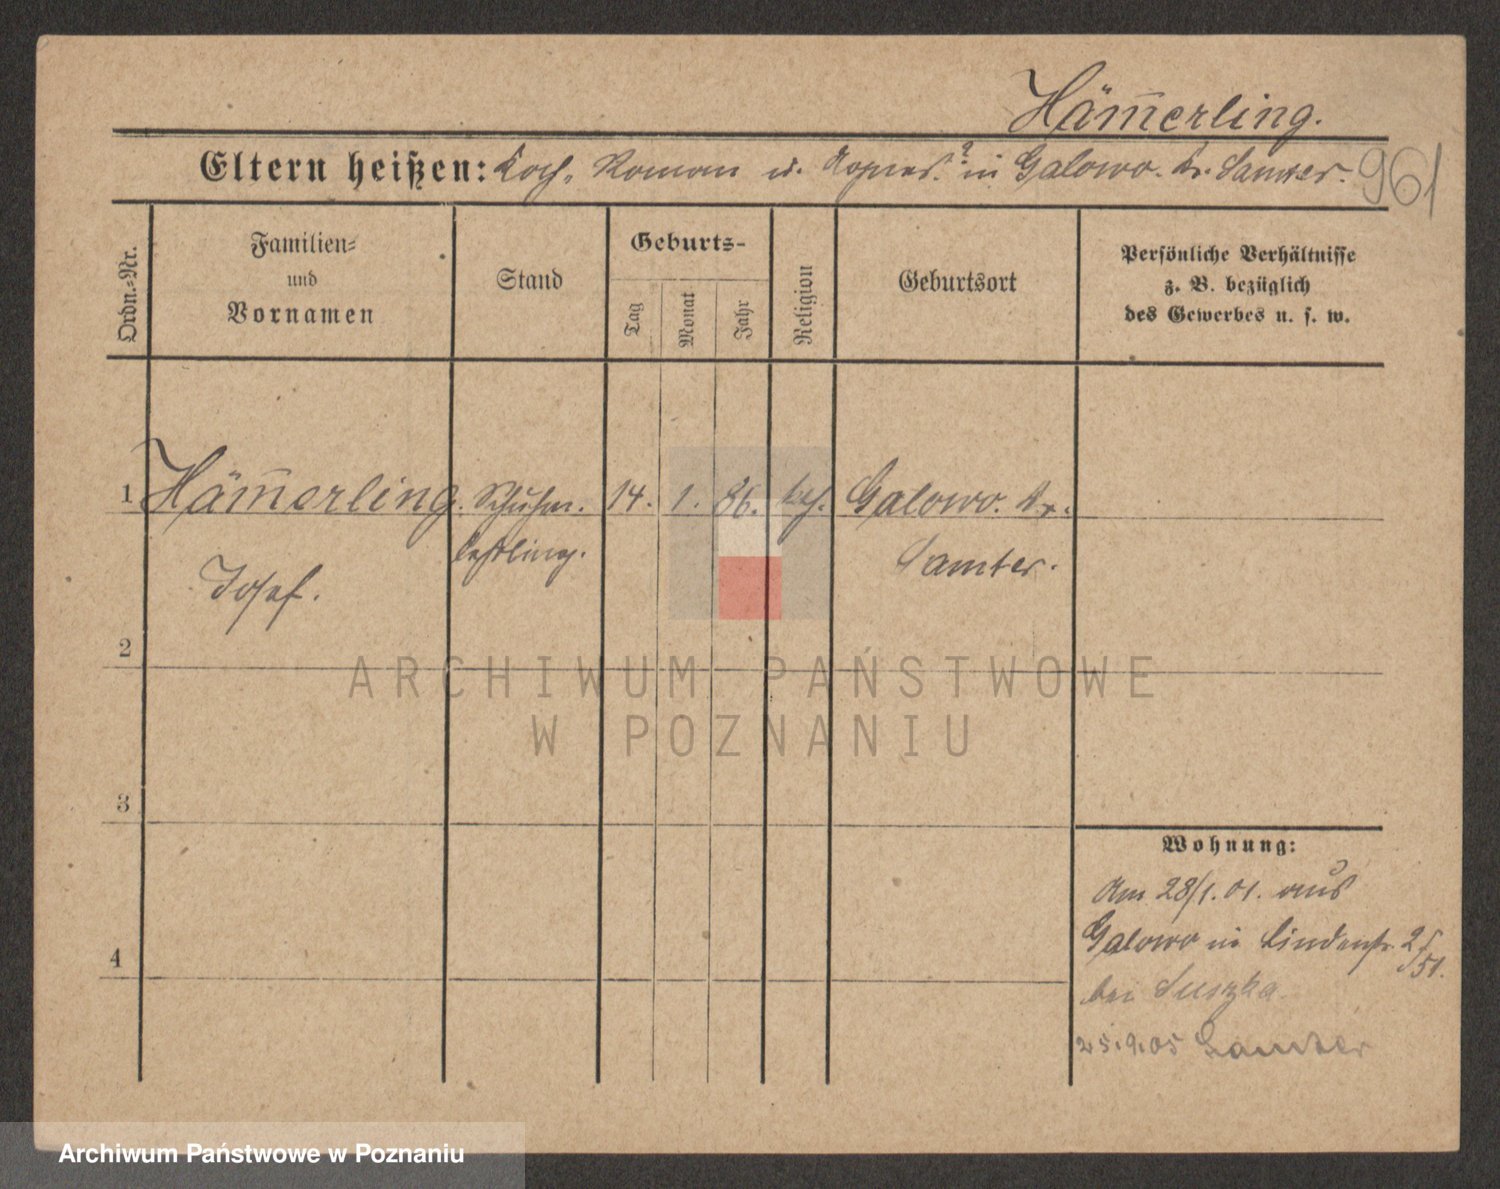 Häm̅erling.
Eltern heißen: Roman u. Agnes? in Galowo. Kr. Samter.
961
Ordn.-Nr.
Familien-
und
Vornamen
Stand
Geburts-
Tag
Monat
Jahr
Religion
Geburtsort
Persönliche Verhältnisse
z. B. bezüglich
des Gewerbes u. s. w.
1 Häm̅erling. Schuhm. 14. 1. 86. kth. Galowo. Kr.
lehrling. Samter.
Josef.
2
ARCHIWUM PAŃSTWOWE
W POZNANIU
3
Wohnung:
Am 28/1. 01. aus
4 Galowo in Lindenstr.
bei Suszka.
25.9.05 Samter
Archiwum Państwowe w Poznaniu